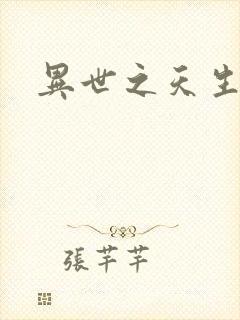 異世之天生
張芊芊